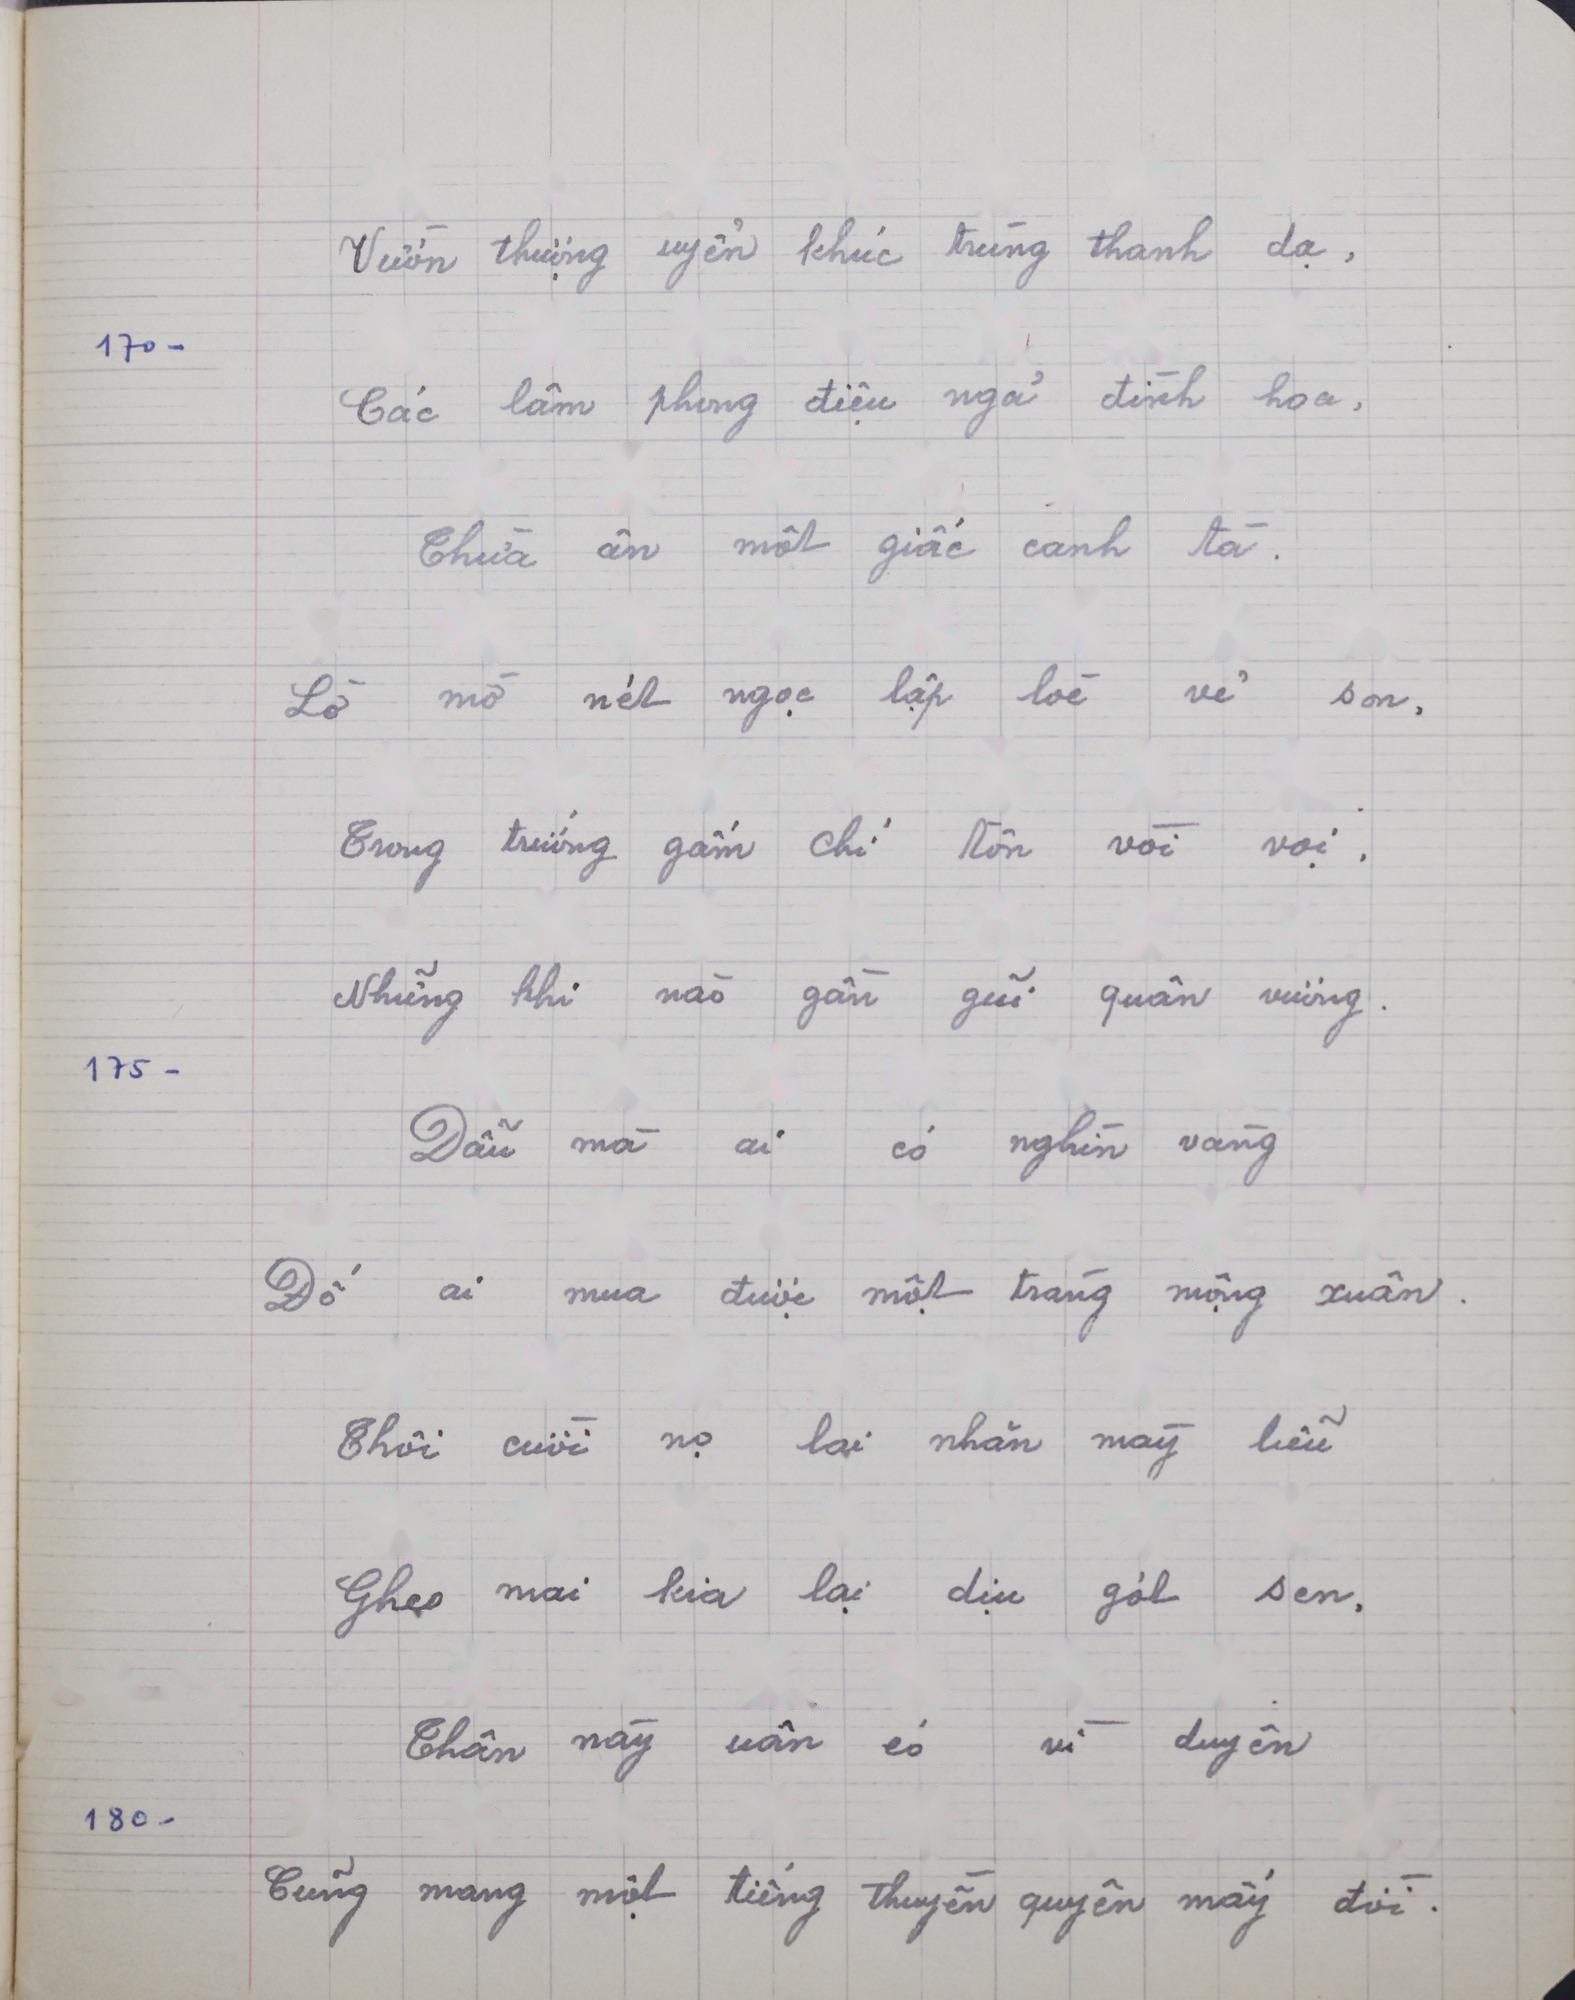 Vườn thượng uyển khúc trùng thanh dạ,
170-
Các lâm phong điệu ngả đình hoa,
Thừa ân một giấc canh tà.
Lờ mờ nét ngọc lập loè vẻ son,
Trong trướng gấm chí tôn vòi vọi,
Những khi nào gần gũi quân vương.
175-
Dẫu mà ai có nghìn vàng
Đố ai mua được một tràng mộng xuân.
Thôi cười nọ lại nhăn mày liễu
Ghẹo mai kia lại dịu gót sen,
Thân này uân có vì duyên
180-
Cũng mang một tiếng thuyền quyên mấy đời.